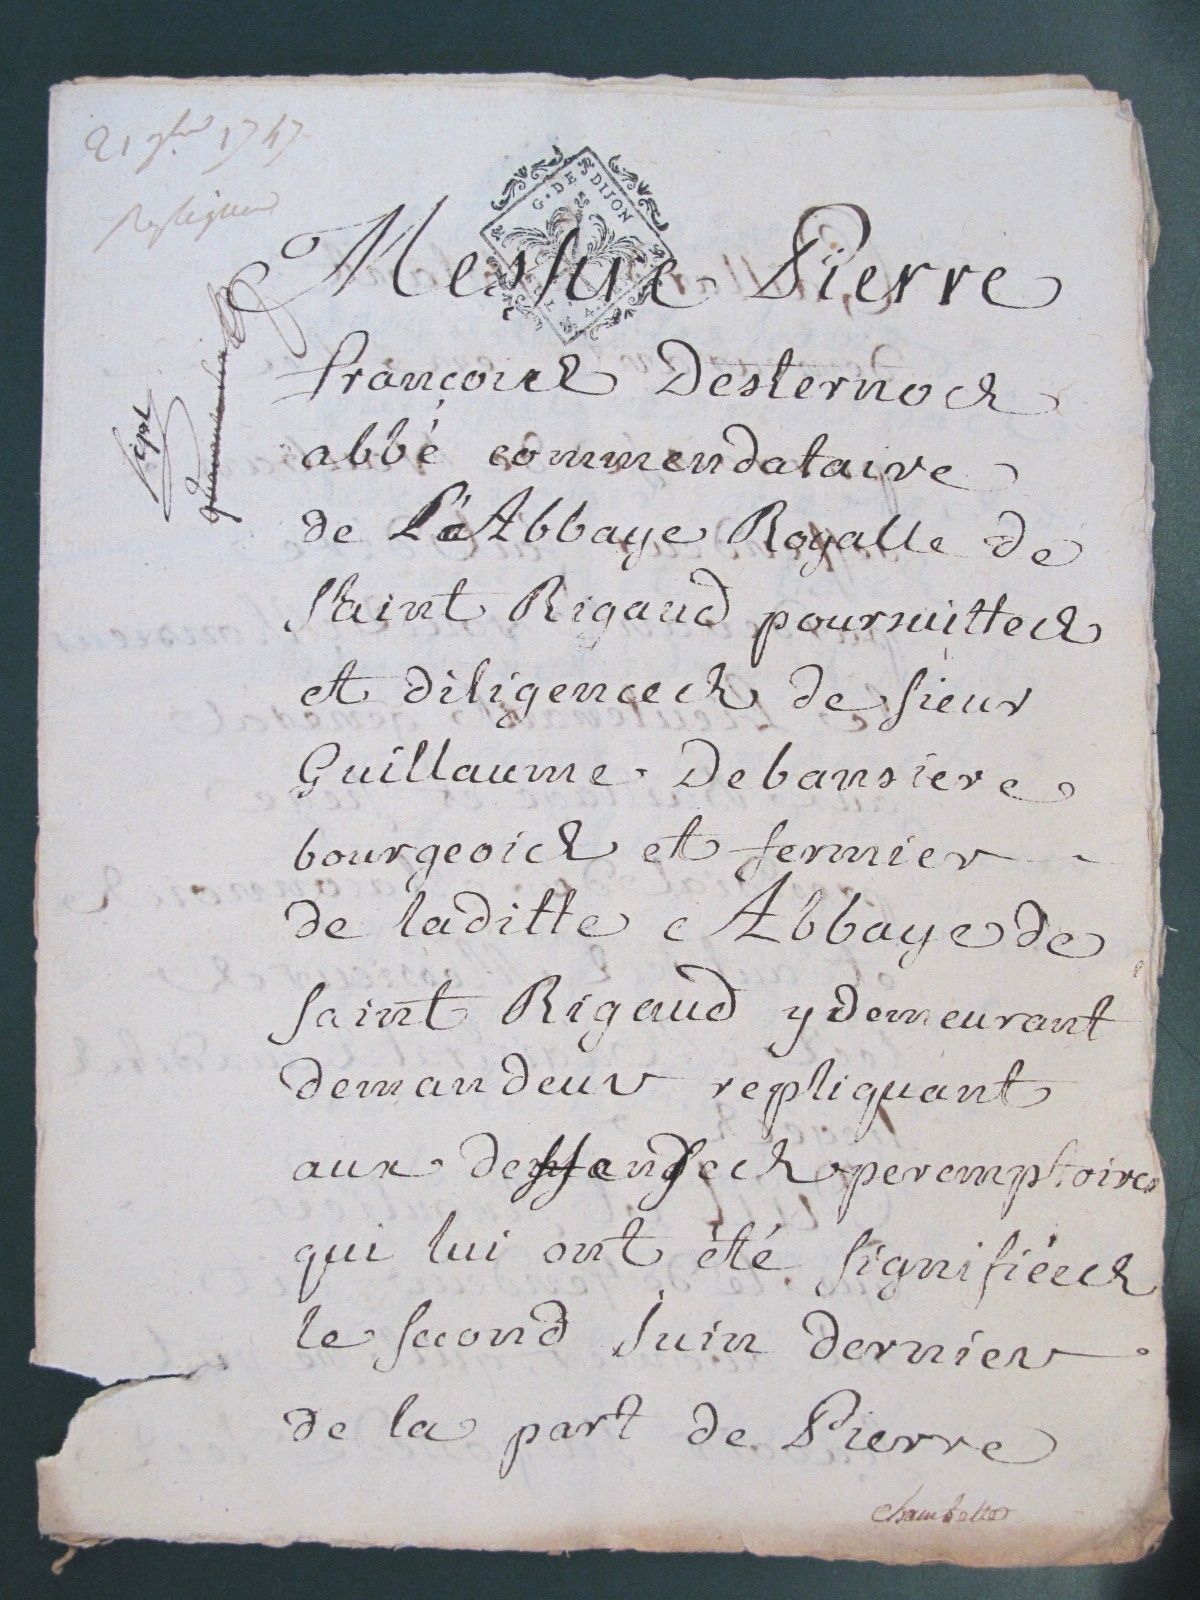 21 9bre 1747
Repliques
G. DE DIJON
Messire Pierre
françoick Desternock
abbé commendataire
de L'Abbaye Royalle de
Saint Rigaud poursuitteck
et diligenceck de sieur
Guillaume Debansiere
bourgeoick et fermier
de laditte Abbaye de
saint Rigaud y demeurant
demandeur repliquant
aux deffenseck peremptoires
qui lui ont été signifiéeck
le second Juin dernier
de la part de Pierre
sept